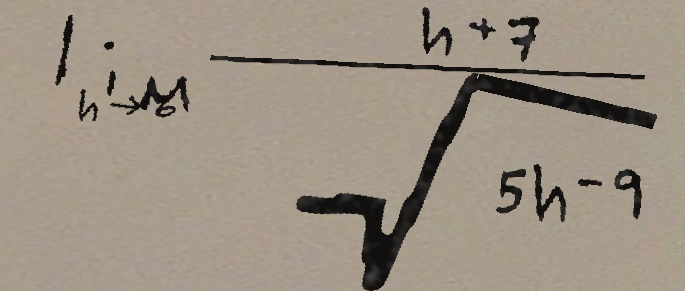 lim h→∞ h+7
√5h-9